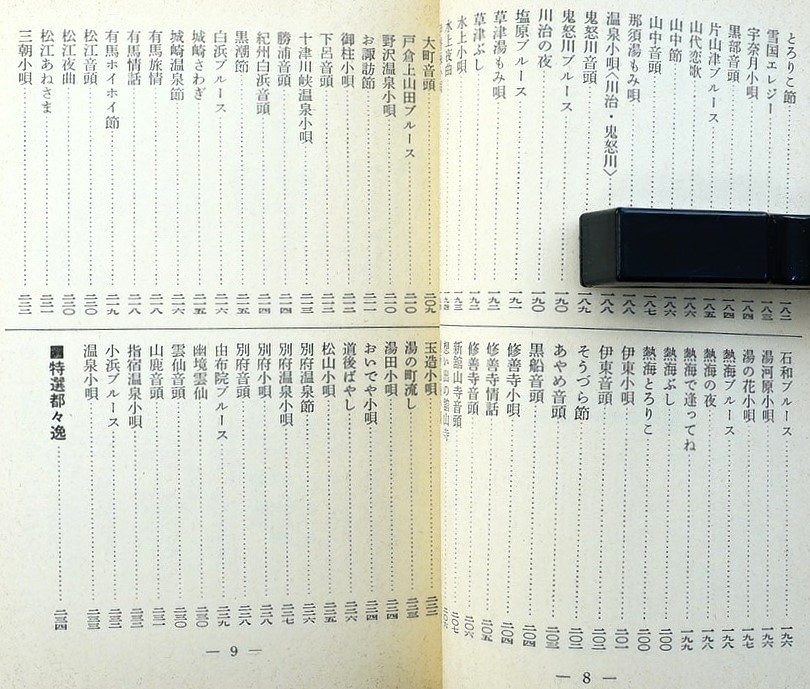 とろりこ節 一八二
雪国エレジー
宇奈月小唄
黒部音頭
片山津ブルース
山代恋歌
山中節
山中音頭
那須湯もみ唄
温泉小唄〈川治・鬼怒川〉
鬼怒川音頭
鬼怒川ブルース 一九〇
川治の夜 一九〇
塩原ブルース 一九一
草津湯もみ唄 一九二
草津ぶし 一九二
水上小唄 一九三
水上夜曲
石和ブルース 一九六
湯河原小唄 一九六
湯の花小唄 一九七
熱海ブルース 一九八
熱海の夜 一九八
熱海で逢ってね 一九九
熱海ぶし 二〇〇
熱海とろりこ 二〇〇
伊東小唄 二〇一
伊東音頭 二〇二
そうづら節 二〇二
あやめ音頭 二〇三
黒船音頭 二〇四
修善寺小唄 二〇四
修善寺情話 二〇五
修善寺音頭 二〇六
新館山寺音頭 二〇七
― 8 ―
大町音頭 二〇九
戸倉上山田ブルース 二一〇
野沢温泉小唄 二一〇
お諏訪節 二一一
御柱小唄 二一二
下呂音頭 二一二
十津川峡温泉小唄 二一三
勝浦音頭 二一四
紀州白浜音頭 二一四
黒潮節 二一五
白浜ブルース 二一六
城崎さわぎ 二一五
城崎温泉節 二一六
有馬旅情 二一八
有馬情話 二一八
有馬ホイホイ節 二一九
松江音頭 二二〇
松江夜曲 二二〇
松江あねさま 二二一
三朝小唄 二二二
玉造小唄 二二二
湯の町流し 二二三
湯田小唄 二二四
おいでや小唄 二二四
道後ばやし 二二六
松山小唄 二二五
別府温泉節 二二六
別府温泉小唄 二二七
別府小唄 二二八
別府音頭 二二八
由布院ブルース 二二九
幽境雲仙 二三〇
雲仙音頭 二三〇
山鹿音頭 二三一
指宿温泉小唄 二三二
小浜ブルース 二三二
温泉小唄 二三三
■特選都々逸 二三四
― 9 ―